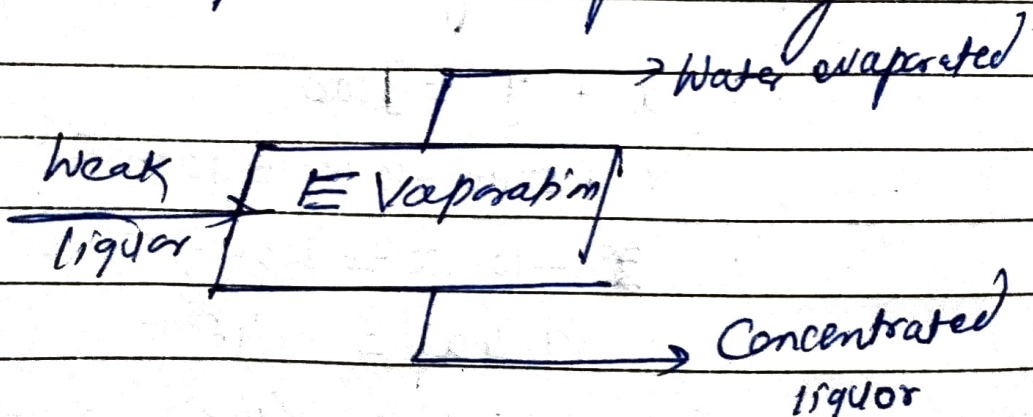 Water evaporated
Weak
liquor
Evaporation
Concentrated
liquor